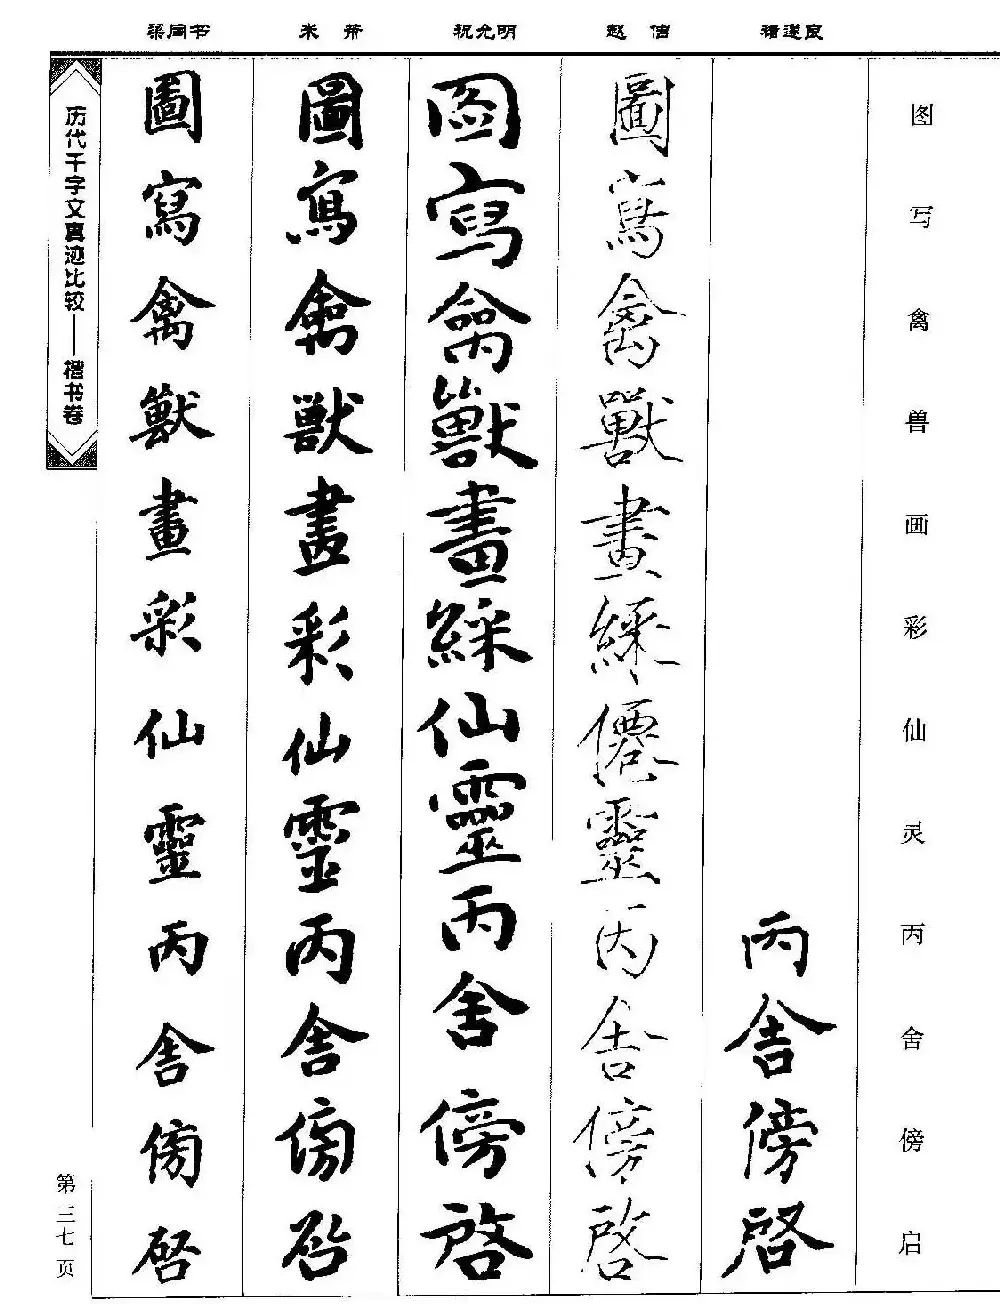 梁同书 米芾 祝允明 赵佶 褚遂良
图写禽兽画彩仙灵丙舍傍启
丙舍傍啓
圖寫禽獸畫綵僊靈丙舍傍啓
圖寫禽獸畫綵仙靈丙舍傍啓
圖寫禽獸畫彩仙靈丙舍傍啓
圖寫禽獸畫彩仙靈丙舍傍啓
历代千字文真迹比较——楷书卷
第三七页